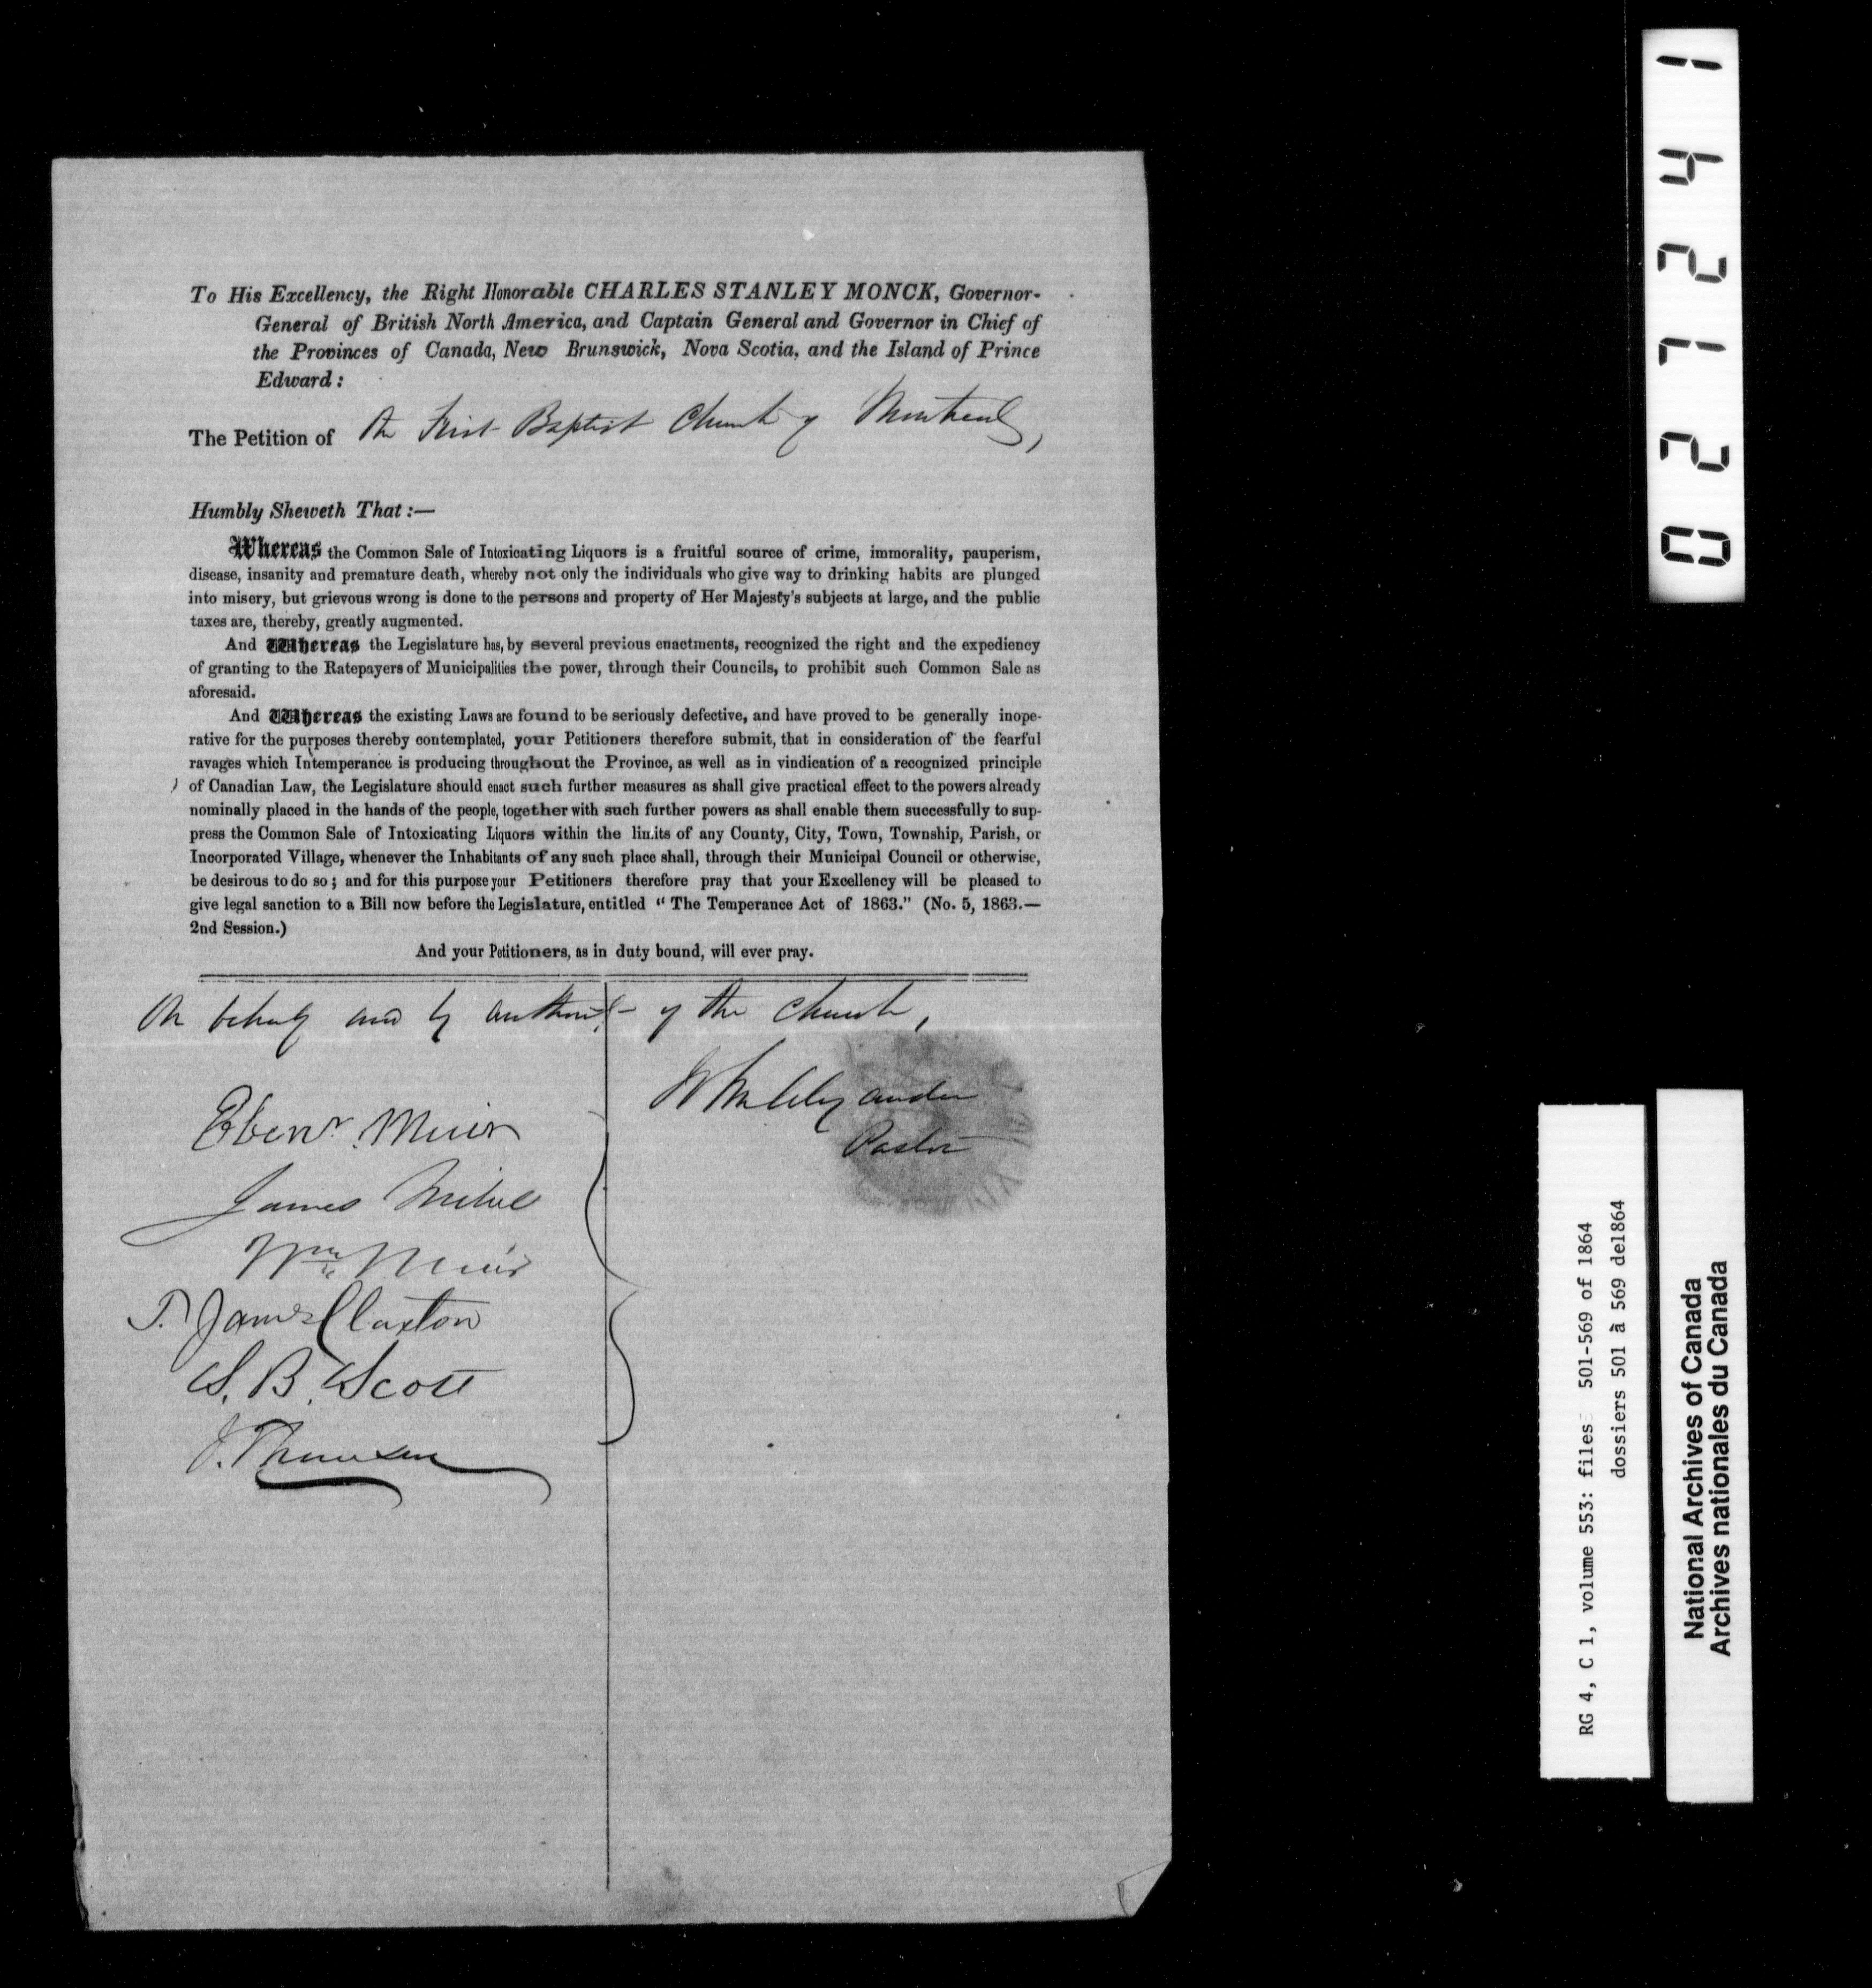 To His Excellency, the Right Honorable CHARLES STANLEY MONCK, Governor-
General of British North America, and Captain General and Governor in Chief of
the Provinces of Canada, New Brunswick, Nova Scotia, and the Island of Prince
Edward:
The Petition of the First Baptist Church of Montreal,
Humbly Sheweth That:—
Whereas the Common Sale of Intoxicating Liquors is a fruitful source of crime, immorality, pauperism,
disease, insanity and premature death, whereby not only the individuals who give way to drinking habits are plunged
into misery, but grievous wrong is done to the persons and property of Her Majesty's subjects at large, and the public
taxes are, thereby, greatly augmented.
And Whereas the Legislature has, by several previous enactments, recognized the right and the expediency
of granting to the Ratepayers of Municipalities the power, through their Councils, to prohibit such Common Sale as
aforesaid.
And Whereas the existing Laws are found to be seriously defective, and have proved to be generally inope-
rative for the purposes thereby contemplated, your Petitioners therefore submit, that in consideration of the fearful
ravages which Intemperance is producing throughout the Province, as well as in vindication of a recognized principle
of Canadian Law, the Legislature should enact such further measures as shall give practical effect to the powers already
nominally placed in the hands of the people, together with such further powers as shall enable them successfully to sup-
press the Common Sale of Intoxicating Liquors within the limits of any County, City, Town, Township, Parish, or
Incorporated Village, whenever the Inhabitants of any such place shall, through their Municipal Council or otherwise,
be desirous to do so; and for this purpose your Petitioners therefore pray that your Excellency will be pleased to
give legal sanction to a Bill now before the Legislature, entitled "The Temperance Act of 1863." (No. 5, 1863.—
2nd Session.)
And your Petitioners, as in duty bound, will ever pray.
On behalf and by authority of the church,
Alexander
Pastor
Ebenr. Muir
James Milne
Wm Muir
T. James Claxton
S. B. Scott
J. Thomson
027241
RG 4, C 1, volume 553: files 501-569 of 1864
dossiers 501 à 569 de1864
National Archives of Canada
Archives nationales du Canada